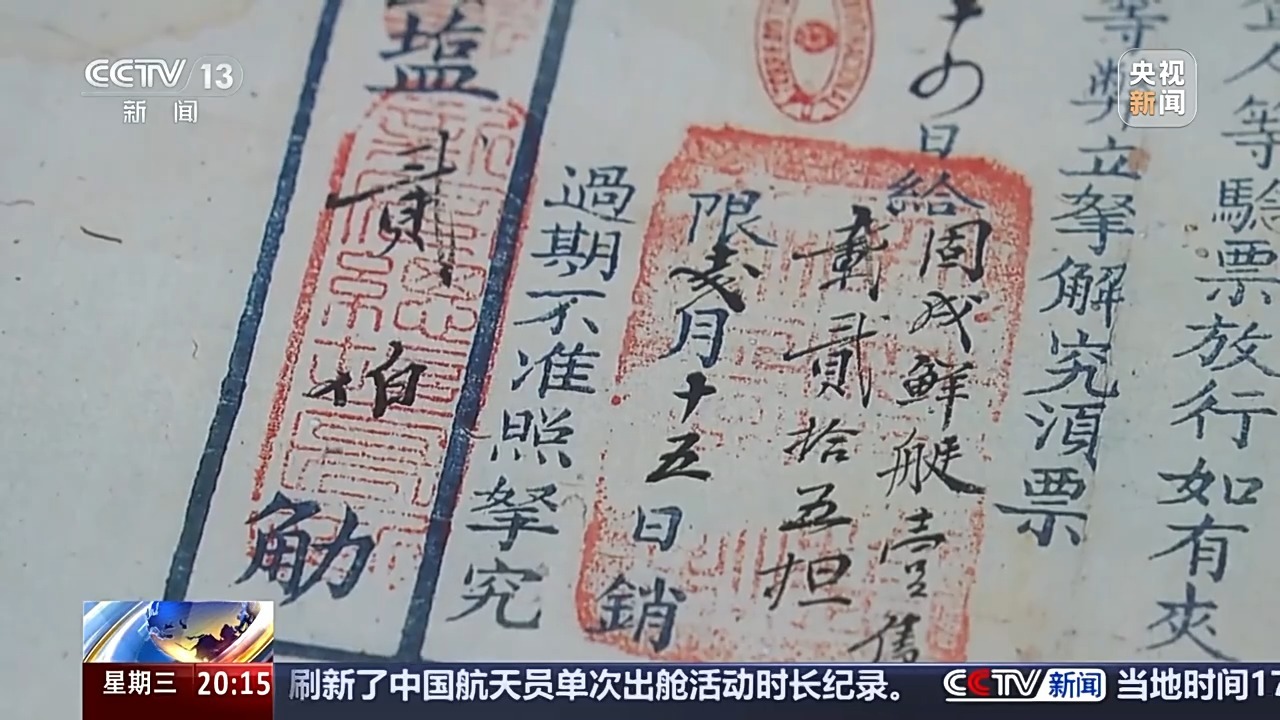 CCTV 13
新闻
央视
新闻
立人等驗票放行如有夾
等弊立拏解究湏票
日給
固戍鮮艇壹隻
載貳拾五担
限 月十五日銷
過期不准照拏究
塩 貳 觔
星期三 20:15
刷新了中国航天员单次出舱活动时长纪录。 CCTV新闻 当地时间17